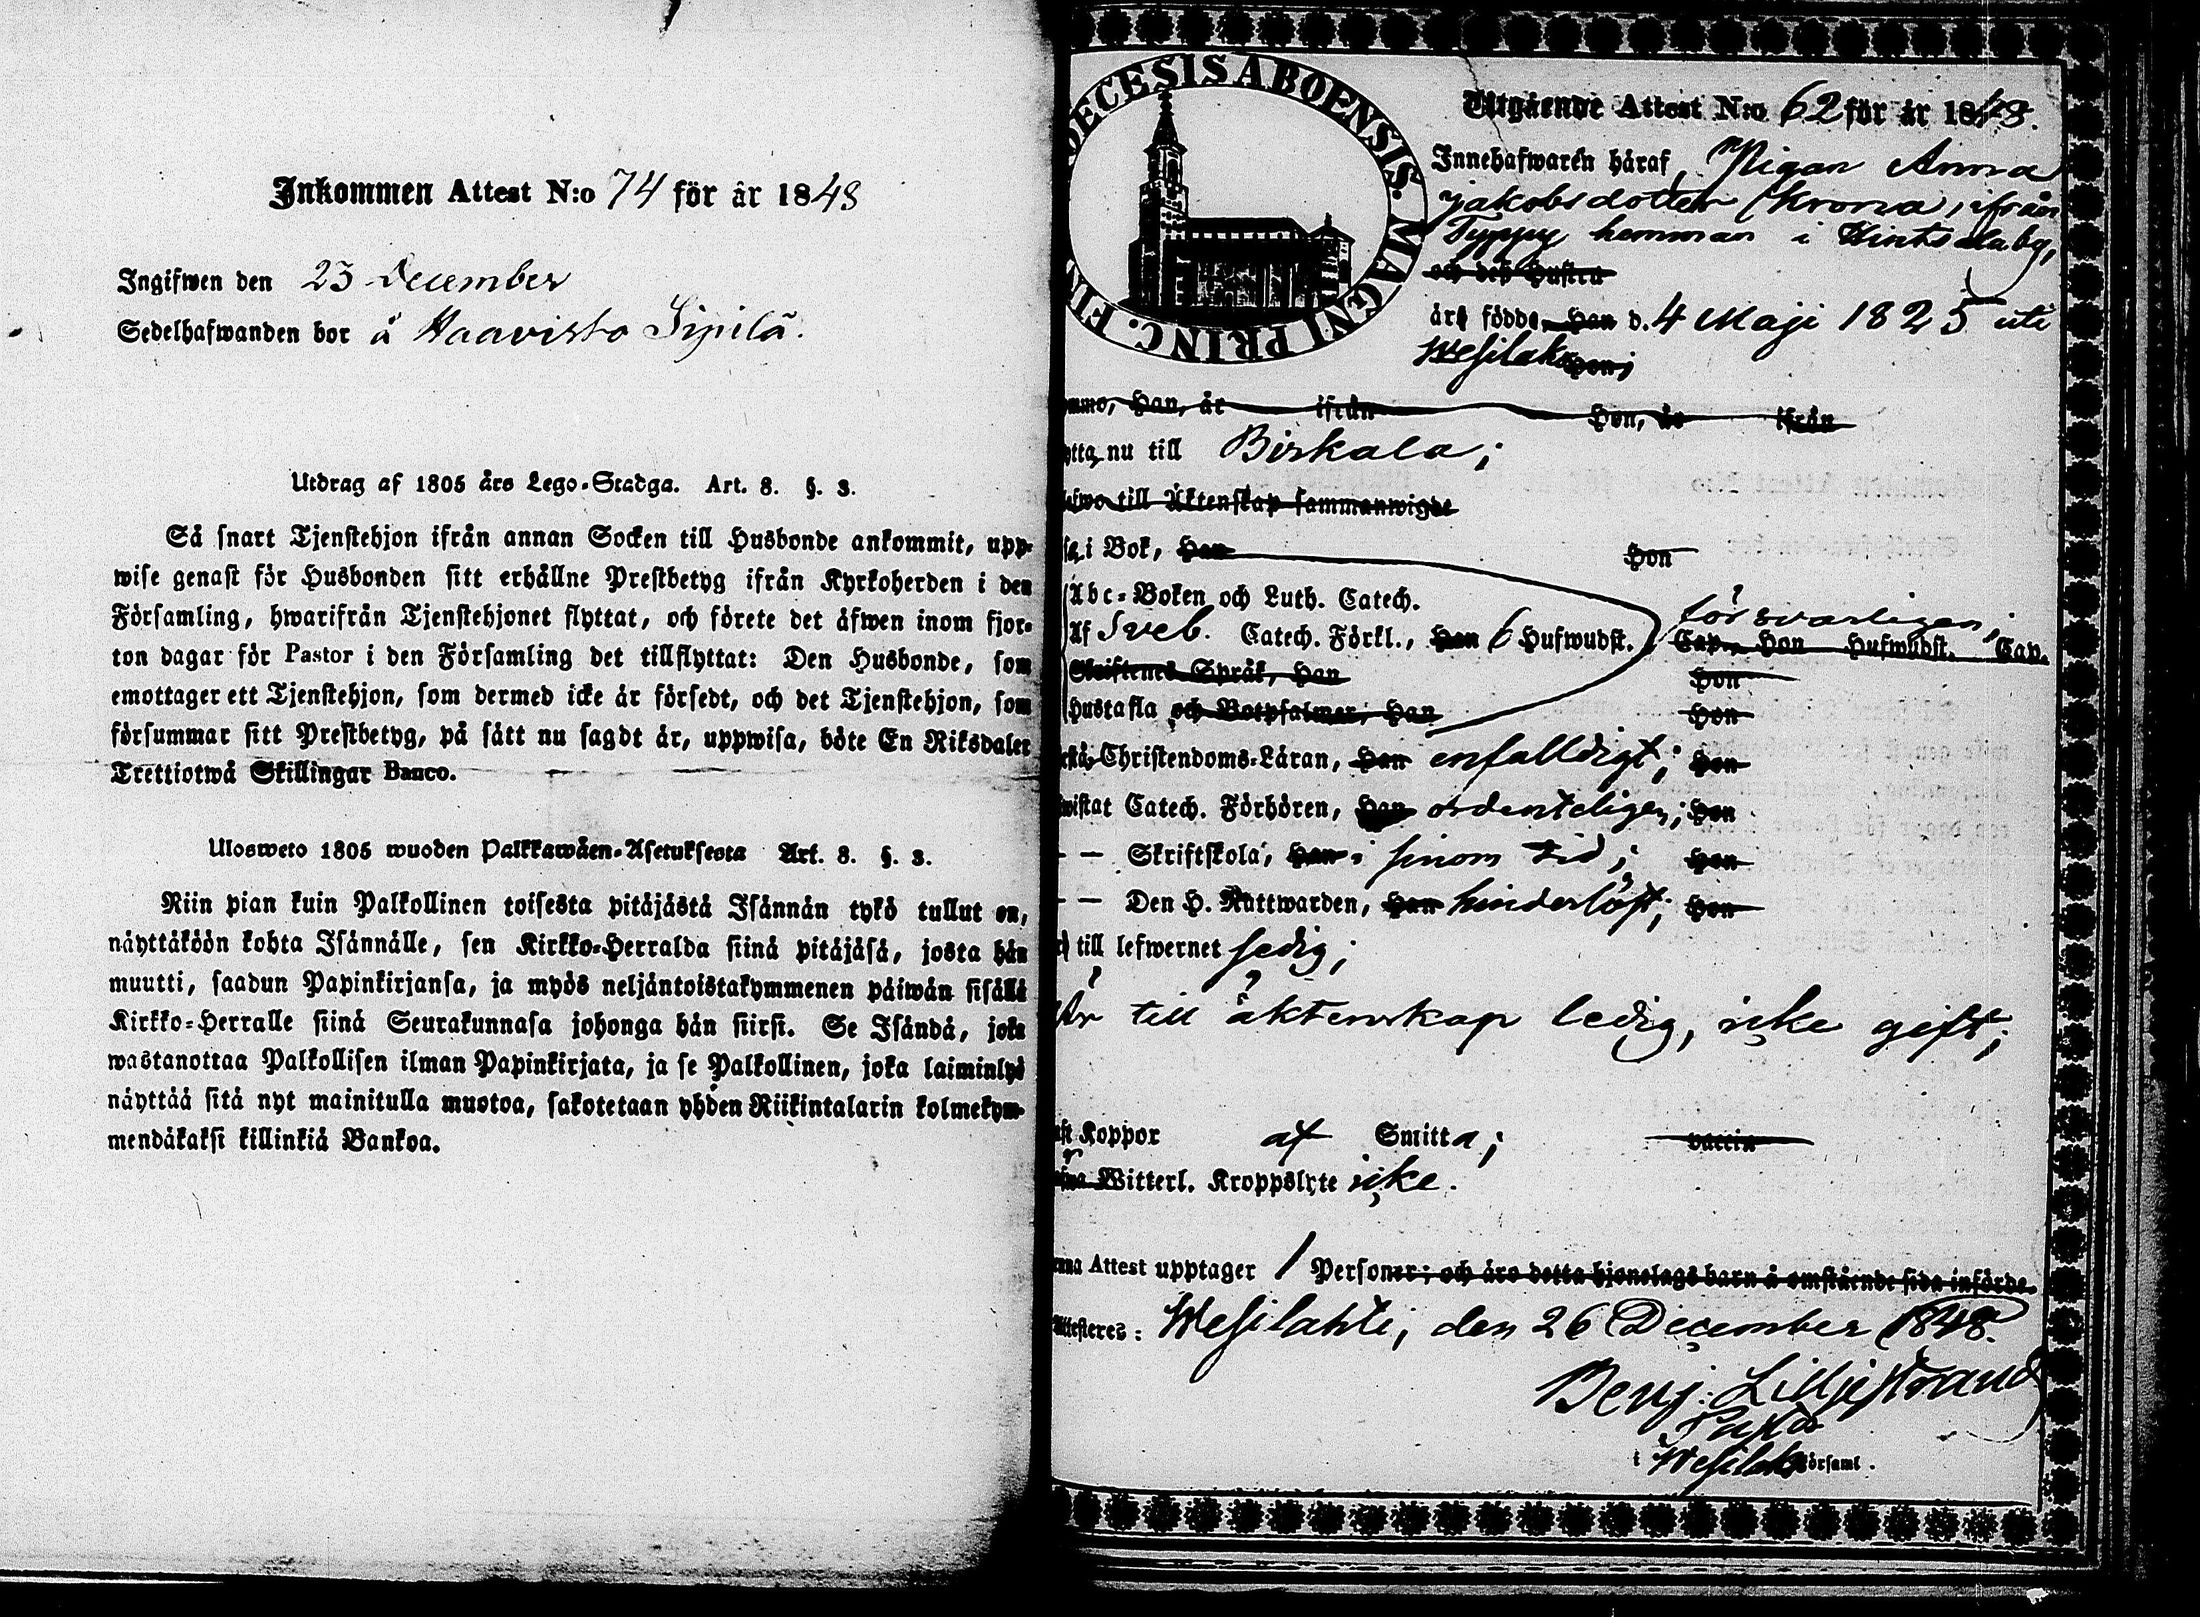 Inkommen Attest N:o 74 för år 1848
Ingifwen den 23 December
Sedelhafwanden bor å Haavisto Sipilä.
Utdrag af 1805 års Lego-Stadga. Art. 8. §. 3.
Så snart Tjenstehjon ifrån annan Socken till Husbonde ankommit, upp-
wise genast för Husbonden sitt erhållne Prestbetyg ifrån Kyrkoherden i den
Församling, hwarifrån Tjenstehjonet flyttat, och förete det äfwen inom fjor-
ton dagar för Pastor i den Församling det tillflyttat: Den Husbonde, som
emottager ett Tjenstehjon, som dermed icke är försedt, och det Tjenstehjon, som
försummar sitt Prestbetyg, på sätt nu sagdt är, uppwisa, böte En Riksdaler
Trettiotwå Skillingar Banco.
Ulosweto 1805 wuoden Palkkawäen-Asetuksesta Art. 8. §. 3.
Niin pian kuin Palkollinen toisesta pitäjästä Isännän tykö tullut on,
näyttäköön kohta Isännälle, sen Kirkko-Herralda siinä pitäjäsä, josta hän
muutti, saadun Papinkirjansa, ja myös neljäntoistakymmenen päiwän sisällä
Kirkko-Herralle siinä Seurakunnasa johonga hän siirsi. Se Isändä, joka
wastanottaa Palkollisen ilman Papinkirjata, ja se Palkollinen, joka laiminlyö
näyttää sitä nyt mainitulla muotoa, sakotetaan yhden Riikintalarin kolmekym-
mendäkaksi killinkiä Bankoa.
DECESIS ABOENSIS. MAGNI PRINC. FIN
Utgående Attest N:o 62 för år 1848.
Innehafwaren häraf, Pigan Anna
Jakobsdotter Krona, ifrån
Typpy hemman i Hintsala by,
och dess Hustru
äro födde, Han d. 4 Maji 1825 uti
Wesilaks Hon;
ommo, Han, år ifrån Hon, år ifrån
ytta nu till Birkala;
efwo till Äktenskap sammanwigde
sa i Bok, Han Hon
Abc-Boken och Luth. Catech. försvarligen;
Af Sveb. Catech. Förkl., Han 6 Hufwudst. Cap. Hon Hufwudst. Cap.
Skriftenes Språk, Han Hon
Hustafla och Botpsalmer, Han Hon
rstå Christendoms-Läran, Han enfalldigt; Hon
wistat Catech. Förhören, Han ordenteligen; Hon
— — Skriftskola, Han i sinom tid; Hon
— — Den H. Nattwarden, Han hinderlöst; Hon
till lefwernet sedig;
Är till äktenskap ledig, icke gift;
aft Koppor af Smitta; vaccin
Witterl. Kroppslyte icke.
enna Attest upptager 1 Personer; och äro detta hjonelags barn å omstående sida införde.
Attesteres: Wesilahti, den 26 December 1848.
Benj. Lilljestrand
Pastor
i Wesilaks Församl.